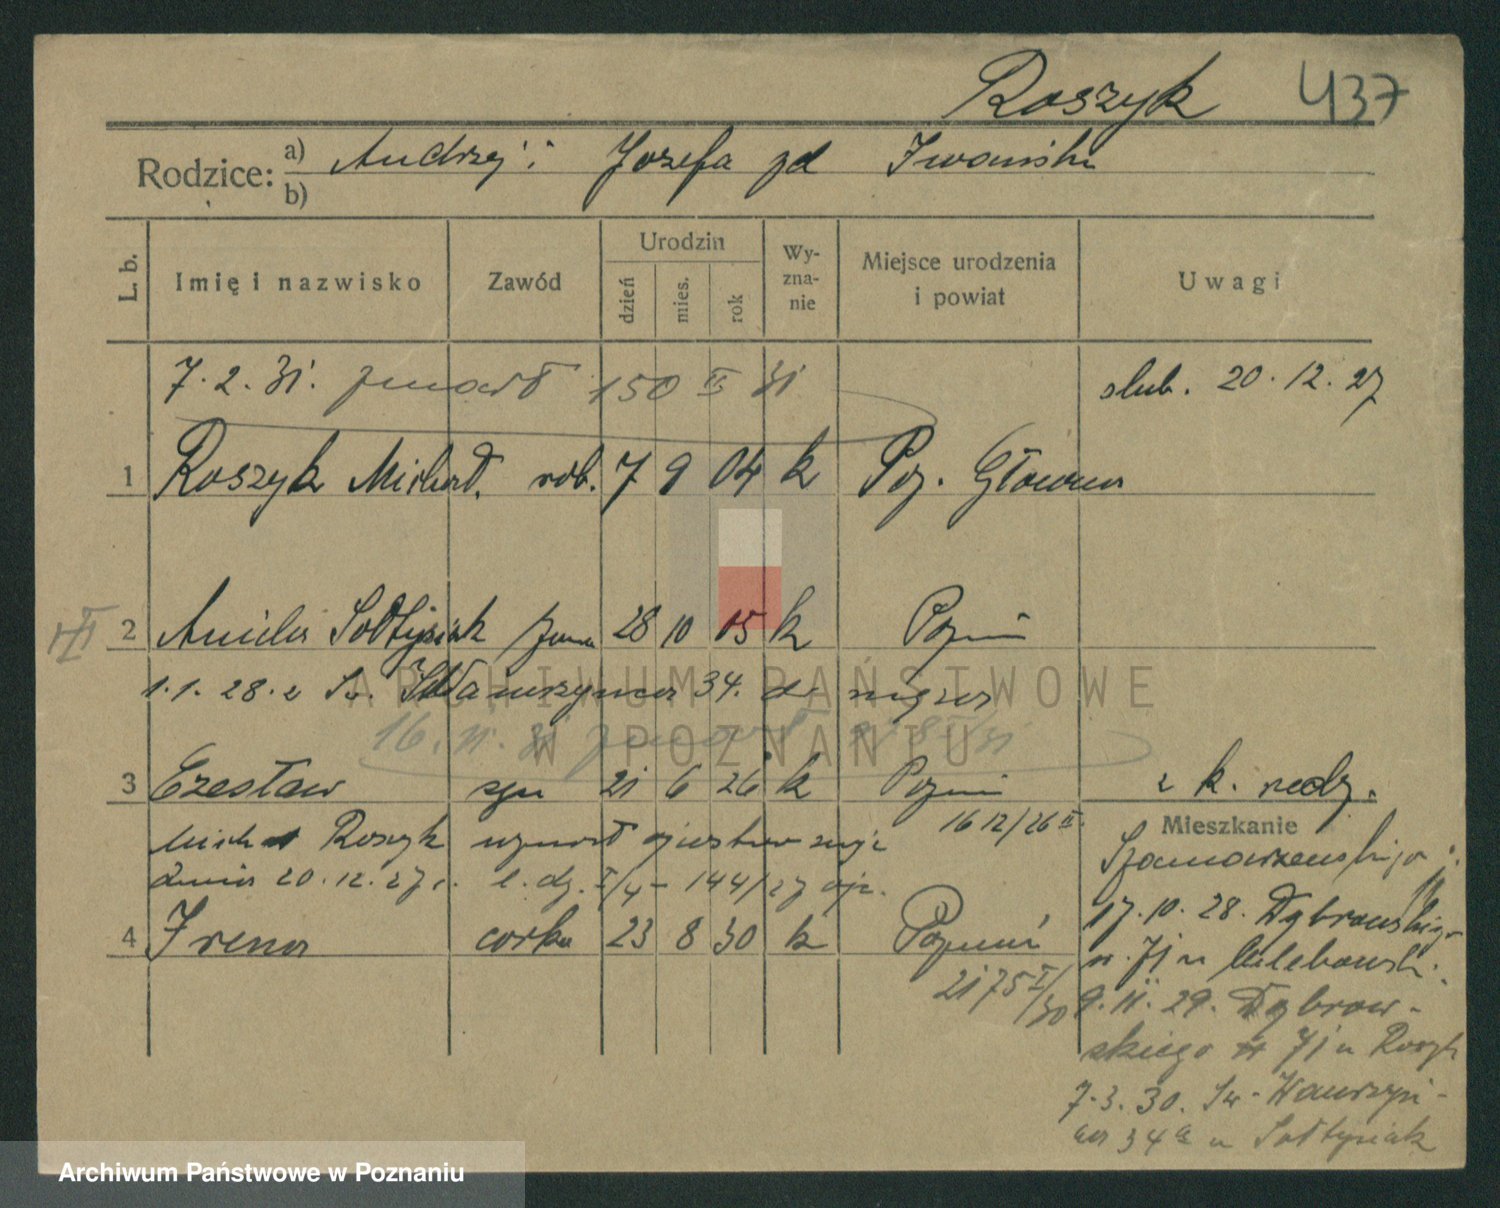 Roszyk 437
Rodzice: a) Andrzej i Józefa zd Iwańska
b)
L. b. Imię i nazwisko Zawód Urodzin dzień mies. rok Wyznanie Miejsce urodzenia i powiat Uwagi
7. 2. 31. zmarł 150 II 31
ślub. 20. 12. 27
1 Roszyk Michał. rob. 7 9 04 k Poz. Główna
2 Aniela Sołtysiak żona 28 10 05 k Pozn
1. 1. 28. z Św. Wawrzyńca 34. do męża
16. II. 31 zmarł
3 Czesław syn 21 6 26 k Pozn
1612/26 II.
z k. niedz.
Michał Roszyk uznał ojcostwo
dnia 20. 12. 27 r. l. dz. I/4 - 144/27
4 Irena córka 23 8 30 k Poznań
2175 I/30
Mieszkanie
Szamarzewskiego
17. 10. 28. Dąbrowskiego
71 u
9. 11. 29. Dąbrow-
skiego 71 u Roszyk
7. 3. 30. Św. Wawrzyń-
ca 34a u Sołtysiak
ARCHIWUM PAŃSTWOWE
W POZNANIU
Archiwum Państwowe w Poznaniu